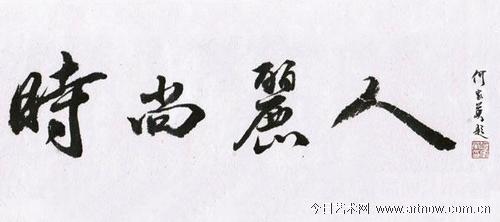 時尚麗人
何家英題
今日艺术网 www.artnow.com.cn